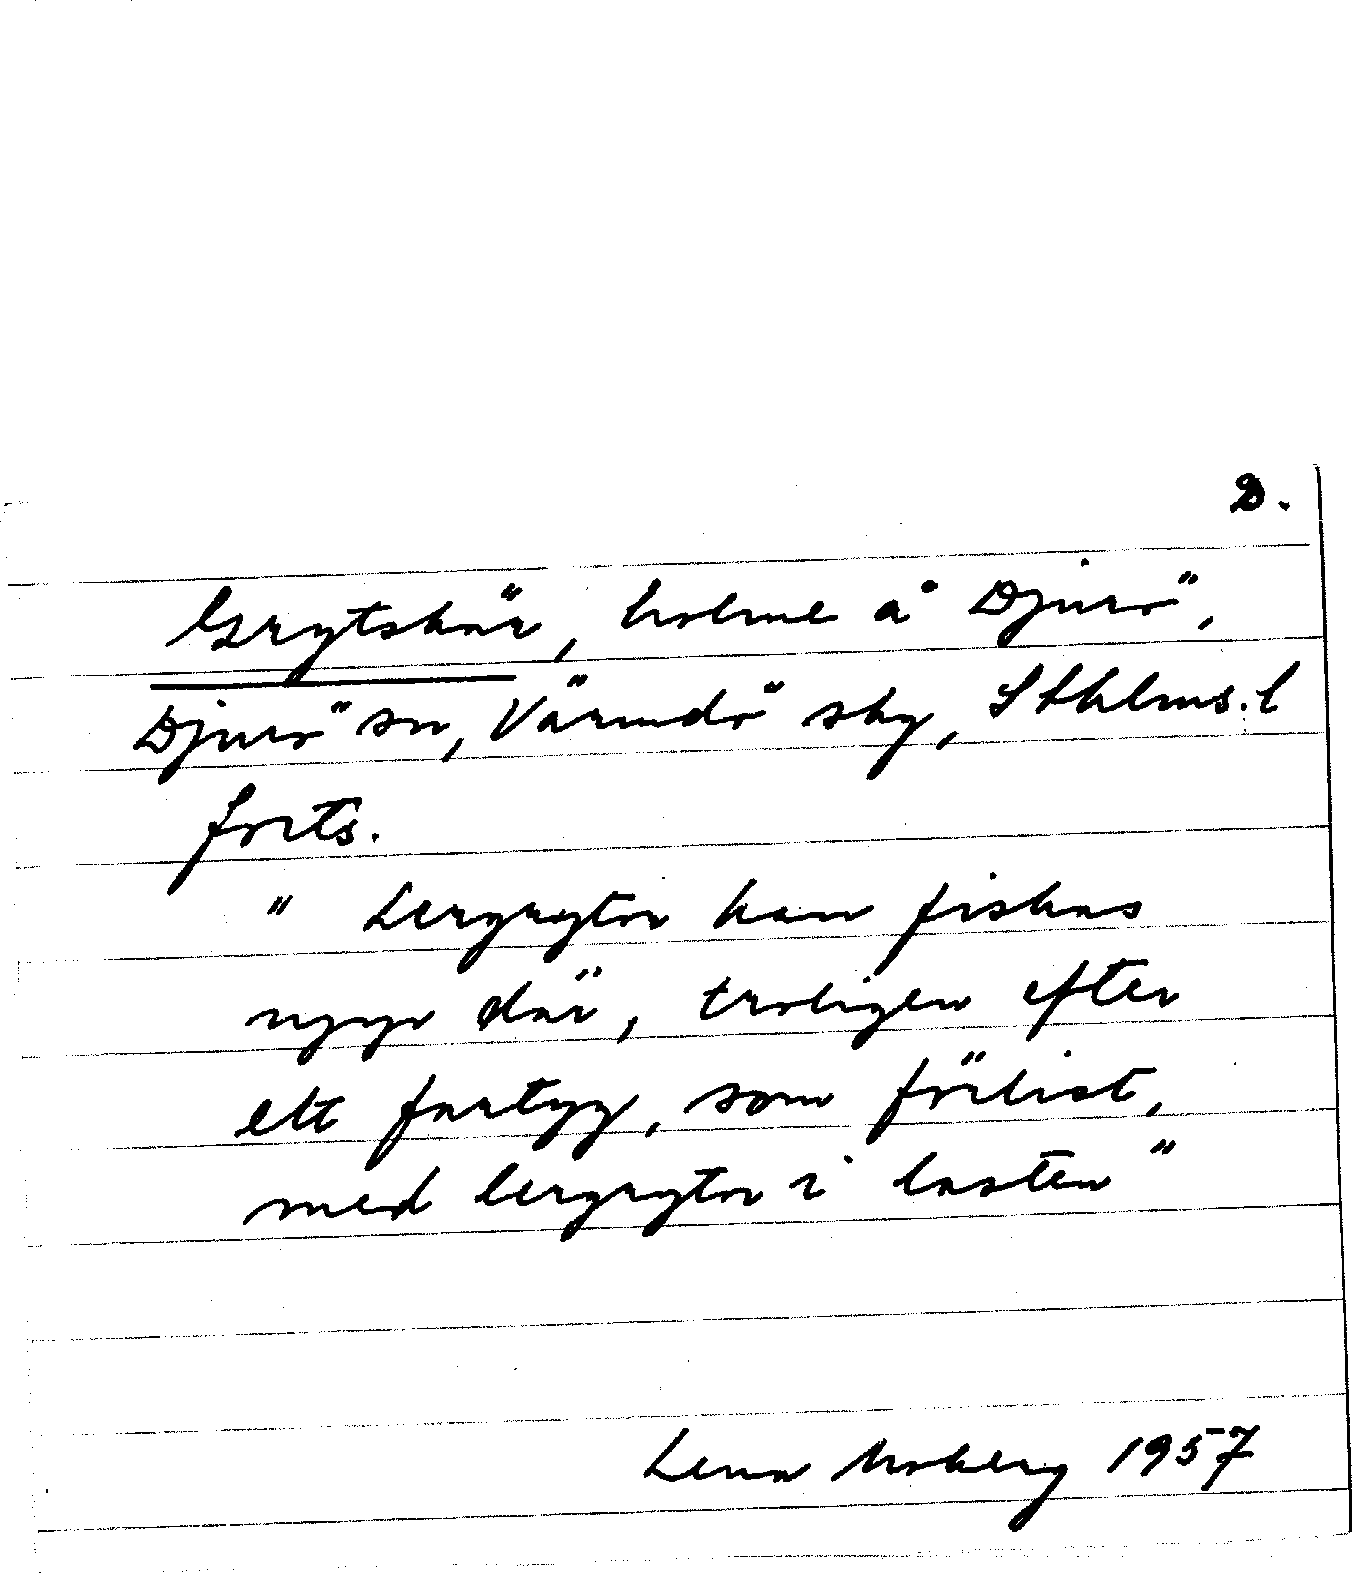 D.
Grytskär, holme å Djurö,
Djurö sn, Värmdö skg, Sthlms. l
forts.
" Lergrytor kan fiskas
upp där, troligen efter
ett fartyg, som förlist,
med lergrytor i lasten "
Lena Moberg 1957